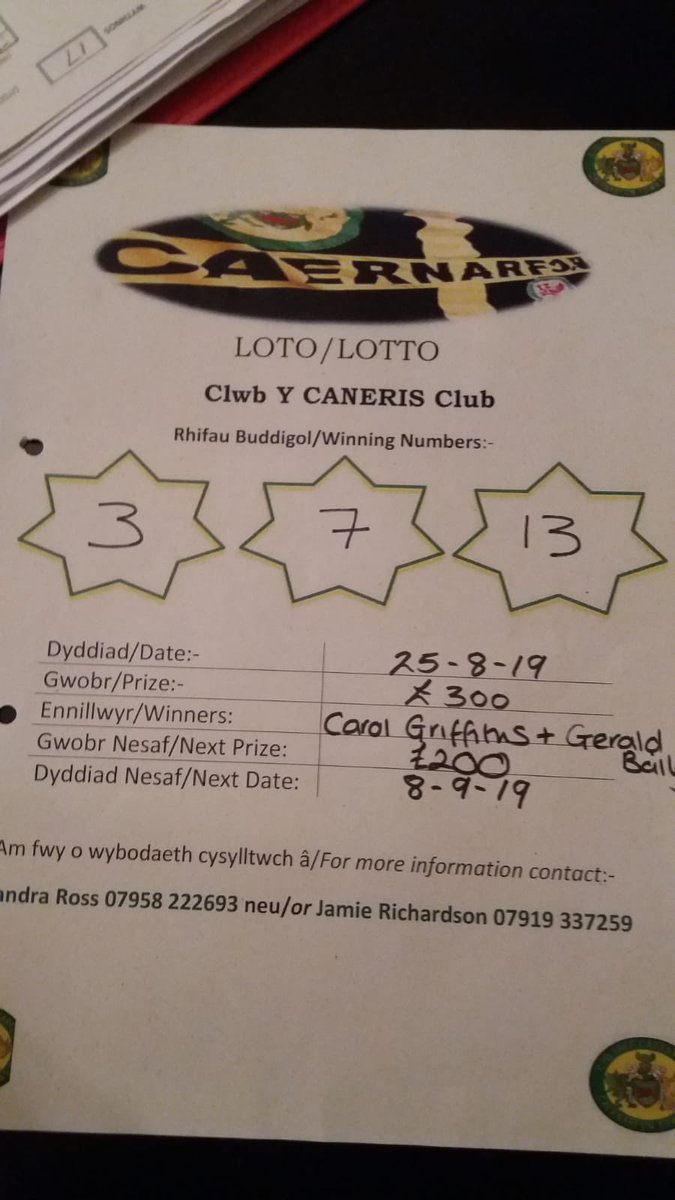 17
CAERNARFON
LOTO/LOTTO
Clwb Y CANERIS Club
Rhifau Buddigol/Winning Numbers:-
3 7 13
Dyddiad/Date:- 25-8-19
Gwobr/Prize:- £300
Ennillwyr/Winners: Carol Griffiths + Gerald
Gwobr Nesaf/Next Prize: £200
Dyddiad Nesaf/Next Date: 8-9-19
Am fwy o wybodaeth cysylltwch â/For more information contact:-
andra Ross 07958 222693 neu/or Jamie Richardson 07919 337259